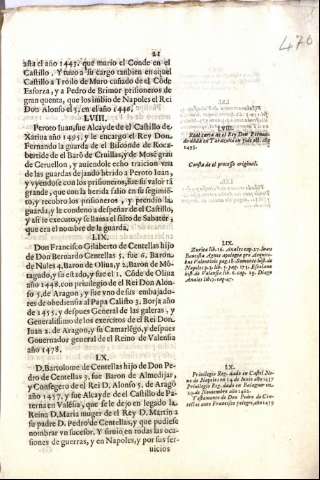 470
21
asta el año 1445. que murio el Conde en el
Castillo, Y tuuo a su cargo tambien en aquel
Castillo a Troilo de Muro cuñado de el Cōde
Esforza, y a Pedro de Brimor prisioneros de
gran quenta, que los imbio de Napoles el Rei
Don Alonso el 5. en el año 1446.
LVIII.
Peroto Iuan, fue Alcayde de el Castillo de
Xatiua año 1495. y le encargo el Rey Don
Fernando la guarda de el Bisconde de Roca-
bertide de el Barõ de Cruillas, y de Mosē gras
de Ceruellon, y auiendole echo traicion vna
de las guardas dejando herido a Peroto Iuan,
y yendose con los prisioneros, fue su valor tã
grande, que con la herida salio en su seguimiē-
to, y recobro los prisioneros, y prendio la
guarda, y le condeno a despeñar de el Castillo,
y assi se executo, y se llama el salto de Sabater,
que era el nombre de la guarda.
LVIII.
Real carta de el Rey Don Fernan-
do
1495.
Consta de el proceso original.
LIX.
Don Francisco Gilaberto de Centellas hijo
de Don Bernardo Centellas 5. fue 6. Baron
de Nules 4. Baron de Oliua, y 2. Baron de Mō-
tagudo, y su estado, y fue el 1. Cōde de Oliua
año 1448. con priuilegio de el Rei Don Alon-
so 5. de Aragon, y fue vno de sus embajado-
res de obediensia al Papa Calisto 3. Borja año
de 1455. y despues General de las galeras, y
Generalissimo de los exercitos de el Rei Don
Iuan 2. de Aragon, y su Camarlégo, y despues
Gouernador general de el Reino de Valensia
año 1478.
LIX.
Zurita lib. 16. Anales cap. 37. Iuan
Bautista
LX.
D. Bartolome de Centellas hijo de Don Pe-
dro de Centellas 3. fue Baron de Almedijar,
y Consejero de el Rei D. Alonso 5. de Aragõ
año 1437. y fue Alcayde de el Castillo de Pa-
terna en Valēsia, que se le dejo en legado la
Reina D. Maria muger de el Rey D. Martin a
su padre D. Pedro de Centellas, y que pudiese
nombrar vn sucesor. Y siruio, en todas las oca-
siones de guerras, y en Napoles, y por sus ser-
uicios
LX.
Priuilegio Reg. dado en Castel No-
uo de Napoles en 14 de Iunio año 1437
Priuilegio Reg. dado en Balaguer en
Testamento de Don Pedro de Cen-
tellas ante Francisco